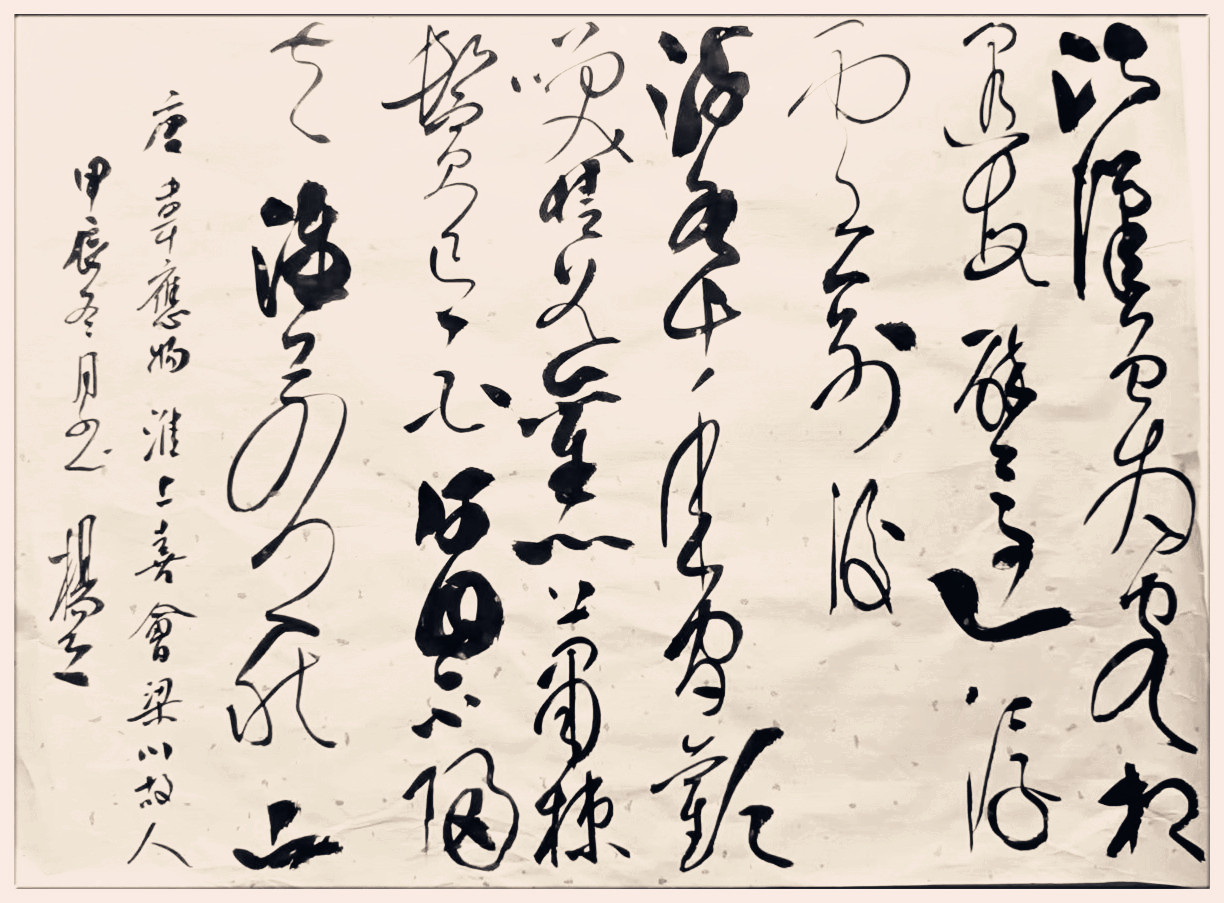 江漢曾為客相
逢每醉還浮
雲一別後
流水十年間歡
笑情如舊蕭疎
鬢已斑何因不歸
去淮上有秋山
唐韋應物淮上喜會梁川故人
甲辰冬月書楊